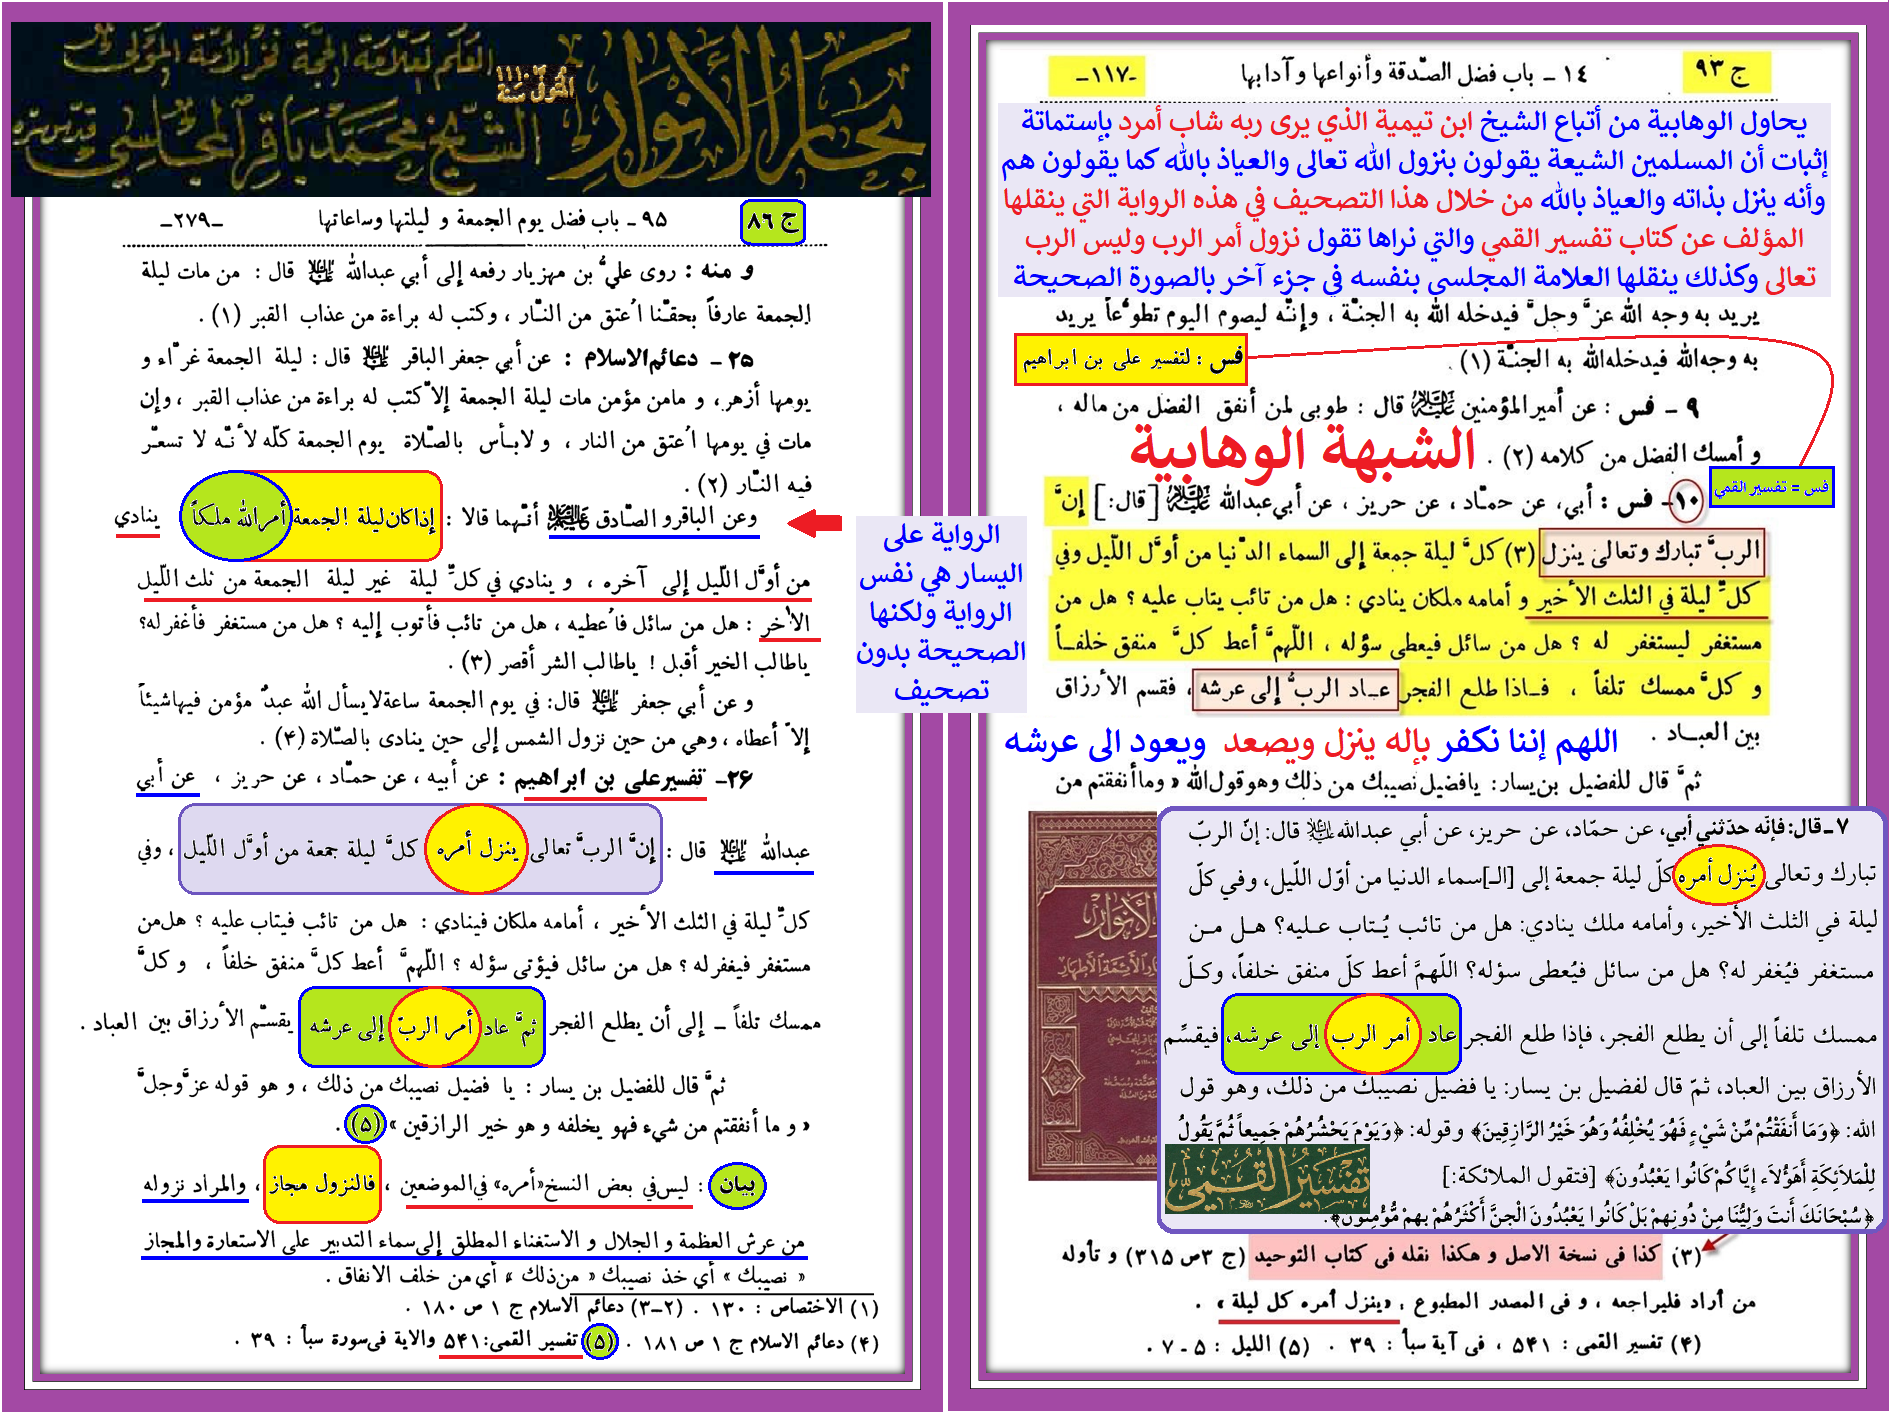 بحار الأنوار
المتوفى سنة ١١١٠
العلم العلامة الحجة فخر الأمة المولى
الشيخ محمد باقر المجلسي
ج ٨٦
٩٥ ـ باب فضل يوم الجمعة و ليلتها وساعاتها
ـ٢٧٩ـ
و منه : روى عليُّ بن مهزيار رفعه إلى أبي عبدالله عليه السلام قال : من مات ليلة
الجمعة عارفاً بحقّنا اُعتق من النّار ، وكتب له براءة من عذاب القبر (١) .
٢٥ ـ دعائم الاسلام : عن أبي جعفر الباقر عليه السلام قال : ليلة الجمعة غرّاء و
يومها أزهر ، و مامن مؤمن مات ليلة الجمعة إلاّ كتب له براءة من عذاب القبر ، وإن
مات في يومها اُعتق من النار ، ولابـأس بالصّلاة يوم الجمعة كلّه لأنّـه لا تسعّـر
فيه النّـار (٢) .
وعن الباقر و الصّادق عليهما السلام أنّـهما قالا : إذا كان ليلة الجمعة أمر الله ملكاً ينادي
من أوَّل اللّيل إلى آخره ، و ينادي في كلِّ ليلة غير ليلة الجمعة من ثلث اللّيل
الأخر : هل من سائل فاُعطيه ، هل من تائب فأتوب إليه ؟ هل من مستغفر فأغفر له؟
ياطالب الخير أقبل ! ياطالب الشر أقصر (٣) .
و عن أبي جعفر عليه السلام قال: في يوم الجمعة ساعة لايسأل الله عبدٌ مؤمن فيها شيئاً
إلاّ أعطاه ، وهي من حين نزول الشمس إلى حين ينادى بالصّلاة (۴) .
٢۶ـ تفسيرعلى بن ابراهيم : عن أبيه ، عن حمّـاد ، عن حريز ، عن أبي
عبدالله عليه السلام قال : إنَّ الربَّ تعالى ينزل أمره كلَّ ليلة جمعة من أوَّل اللّيل ، وفي
كلِّ ليلة في الثلث الأخير ، أمامه ملكان فينادي : هل من تائب فيتاب عليه ؟ هل من
مستغفر فيغفر له ؟ هل من سائل فيؤتى سؤله ؟ اللّهمَّ أعط كلَّ منفق خلفاً ، و كلَّ
ممسك تلفاً ـ إلى أن يطلع الفجر ثمَّ عاد أمر الربّ إلى عرشه يقسّم الأرزاق بين العباد .
ثمَّ قال للفضيل بن يسار : يا فضيل نصيبك من ذلك ، و هو قوله عزَّوجلَّ
« و ما أنفقتم من شيء فهو يخلفه و هو خير الرازقين » (۵) .
بيان : ليس في بعض النسخ «أمره» في الموضعين ، فالنزول مجاز ، والمراد نزوله
من عرش العظمة و الجلال و الاستغناء المطلق إلى سماء التدبير على الاستعارة والمجاز
« نصيبك » أي خذ نصيبك « من ذلك » أي من خلف الانفاق .
(١) الاختصاص : ١٣٠ . (٢ـ٣) دعائم الاسلام ج ١ ص ١٨٠ .
(۴) دعائم الاسلام ج ١ ص ١٨١ . (۵) تفسير القمى: ۵۴١ والاية فى سورة سبأ : ٣٩ .
ج ٩٣
١۴ ـ باب فضل الصّدقة وأنواعها و آدابها
ـ١١٧ـ
يحاول الوهابية من أتباع الشيخ ابن تيمية الذي يرى ربه شاب أمرد بإستماتة
إثبات أن المسلمين الشيعة يقولون بنزول الله تعالى والعياذ بالله كما يقولون هم
وأنه ينزل بذاته والعياذ بالله من خلال هذا التصحيف في هذه الرواية التي ينقلها
المؤلف عن كتاب تفسير القمي والتي نراها تقول نزول أمر الرب وليس الرب
تعالى وكذلك ينقلها العلامة المجلسي بنفسه في جزء آخر بالصورة الصحيحة
يريد به وجه الله عزَّ وجلَّ فيدخله الله به الجنّـة ، وإنّـه ليصوم اليوم تطوُّعاً يريد
به وجه الله فيدخله الله به الجنّـة (١) .
فس : لتفسير على بن ابراهيم
٩ ـ فس : عن أمير المؤمنين عليه السلام قال : طوبى لمن أنفق الفضل من ماله ،
و أمسك الفضل من كلامه (٢) .
الشبهة الوهابية
فس = تفسير القمي
١٠ـ فس : أبي، عن حمّـاد ، عن حريز ، عن أبي عبدالله عليه السلام [قال:] إنَّ
الربَّ تبارك وتعالى ينزل (٣) كلَّ ليلة جمعة إلى السماء الدّنيا من أوَّل اللّيل وفي
كلِّ ليلة في الثلث الأخير و أمامه ملكان ينادي : هل من تائب يتاب عليه ؟ هل من
مستغفر ليستغفر له ؟ هل من سائل فيعطى سؤله ، اللّهمَّ أعط كلَّ منفق خلفـاً
و كلَّ ممسك تلفاً ، فـاذا طلع الفجر عـاد الربُّ إلى عرشه ، فقسم الأرزاق
بين العبـاد .
اللهم إننا نكفر بإله ينزل ويصعد ويعود الى عرشه
ثمَّ قال للفضيل بن يسار: يافضيل نصيبك من ذلك وهو قول الله « وما أنفقتم من
الرواية على
اليسار هي نفس
الرواية ولكنها
الصحيحة بدون
تصحيف
٧ـ قال: فإنّه حدّثني أبي، عن حمّاد، عن حريز، عن أبي عبدالله عليه السلام قال: إنّ الربّ
تبارك وتعالى يُنزل أمره كلّ ليلة جمعة إلى [الـ]سماء الدنيا من أوّل اللّيل، وفي كلّ
ليلة في الثلث الأخير، وأمامه ملك ينادي: هل من تائب يُـتاب عـليه؟ هـل مـن
مستغفر فيُغفر له؟ هل من سائل فيُعطى سؤله؟ اللّهمَّ أعط كلّ منفق خلفاً، وكـلّ
ممسك تلفاً إلى أن يطلع الفجر، فإذا طلع الفجر عاد أمر الرب إلى عرشه، فيقسِّم
الأرزاق بين العباد، ثمّ قال لفضيل بن يسار: يا فضيل نصيبك من ذلك، وهو قول
الله: ﴿وَمَا أَنفَقْتُمْ مِّنْ شَيْءٍ فَهُوَ يُخْلِفُهُ وَهُوَ خَيْرُ الرَّازِقِينَ﴾ وقوله: ﴿وَيَوْمَ يَحْشُرُهُمْ جَمِيعاً ثُمَّ يَقُولُ
لِلْمَلاَئِكَةِ أَهَؤُلاَء إِيَّاكُمْ كَانُوا يَعْبُدُونَ﴾ [فتقول الملائكة:]
﴿سُبْحَانَكَ أَنتَ وَلِيُّنَا مِنْ دُونِهِمْ بَلْ كَانُوا يَعْبُدُونَ الْجِنَّ أَكْثَرُهُمْ بِهِمْ مُّؤْمِنُونَ﴾.
تفسير القمي
(٣) كذا فى نسخة الاصل و هكذا نقله فى كتاب التوحيد (ج ٣ ص ٣١۵) و تأوله
من أراد فليراجعه ، و فى المصدر المطبوع ، «ينزل أمره كل ليلة» .
(۴) تفسير القمى : ۵۴١ ، فى آية سبأ : ٣٩ . (۵) الليل : ۵ ـ ٧ .